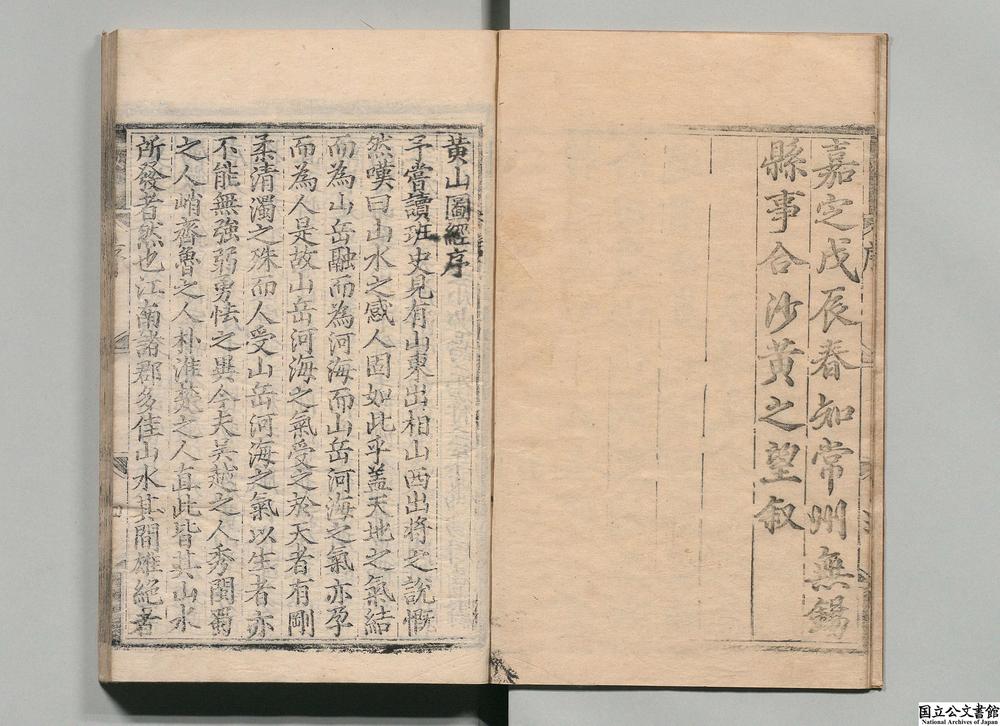 嘉定戊辰春知常州無錫
縣事合沙黄之望叙
黄山圖經序
予嘗讀班史見有山東出相山西出將之說慨
然嘆曰山水之感人固如此乎盖天地之氣結
而為山岳融而為河海而山岳河海之氣亦孕
而為人是故山岳河海之氣受之於天者有剛
柔清濁之殊而人受山岳河海之氣以生者亦
不能無強弱勇怯之異今夫吴越之人秀閩蜀
之人峭齊魯之人朴淮冀之人直此皆其山水
所發者然也江南諸郡多佳山水其間雄絕者
国立公文書館
National Archives of Japan